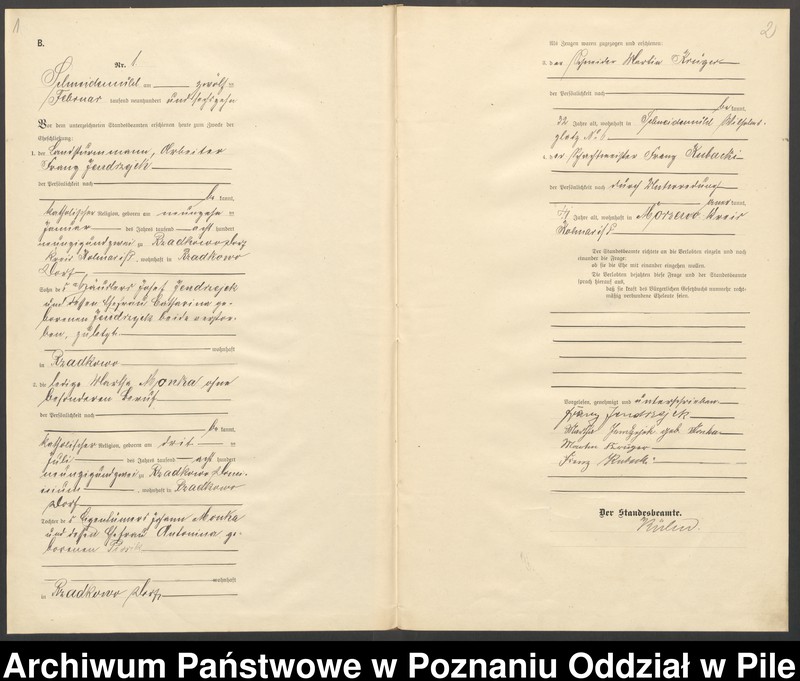 1
B.
Nr. 1
Schneidemühl am zwölf-
Februar tausend neunhundert und sechzehn
Vor dem unterzeichneten Standesbeamten erschienen heute zum Zwecke der
Eheschließung:
1. der Landsturmmann, Arbeiter
Franz Jendrzyck
der Persönlichkeit nach
be kannt,
katholischer Religion, geboren am neunzehn-
Januar des Jahres tausend acht hundert
neunzigundzwei zu Rzadkowo Dorf
Kreis Kolmar i/P., wohnhaft in Rzadkowo
Dorf
Sohn des Häuslers Josef Jendrzyck
und dessen Ehefrau Catharina ge-
borenen Jendrzyck beide verstor-
ben, zuletzt
wohnhaft
in Rzadkowo
2. die ledige Martha Monka ohne
besonderen Beruf
der Persönlichkeit nach
be kannt,
katholischer Religion, geboren am drit-
Juli des Jahres tausend acht hundert
neunzigundzwei zu Rzadkowo Domi-
nium, wohnhaft in Rzadkowo
Dorf
Tochter des Eigentümers Johann Monka
und dessen Ehefrau Antonina ge-
borenen
wohnhaft
in Rzadkowo Dorf
2
Als Zeugen waren zugezogen und erschienen:
3. der Schneider Martin Krüger
der Persönlichkeit nach
be kannt,
Jahre alt, wohnhaft in Schneidemühl Wilhelms-
platz No 6
4. der Schachtmeister Franz Kubacki
der Persönlichkeit nach durch Unterredung
aner kannt,
Jahre alt, wohnhaft in Morzewo Kreis
Kolmar i/P
Der Standesbeamte richtete an die Verlobten einzeln und nach
einander die Frage:
ob sie die Ehe mit einander eingehen wollen.
Die Verlobten bejahten diese Frage und der Standesbeamte
sprach hierauf aus,
daß sie kraft des Bürgerlichen Gesetzbuchs nunmehr recht-
mäßig verbundene Eheleute seien.
Vorgelesen, genehmigt und unterschrieben
Franz Jendrzyck
Martha Jendrzyck geb Monka
Martin Krüger
Franz Kubacki
Der Standesbeamte.
Archiwum Państwowe w Poznaniu Oddział w Pile